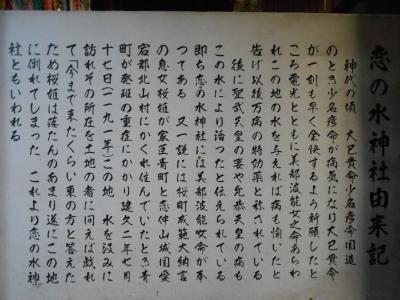 恋の水神社由来記
神代の頃 大己貴命少名彦命国造
のとき少名彦命が病気になり大己貴命
が一刻も早く全快するよう祈願したと
ころ電光とともに美都波能女之命あらわ
れこの地の水を与えれば病も愉いたと
告げ以後万病の特効薬と称されている
後に聖武天皇の妻や允恭天皇の病も
この水により治つたと伝えられている
即ち恋の水神社には美都波能女命が奉
つてある 又一説には桜町成範大納言
の息女桜姫が家臣青町と恋仲山城国愛
宕郡北山村にかくれ住んでいたとき青
町が発班の重症にかかり建久二年七月
十七日(一一九一年)この地 水を汲みに
訪れその所在を土地の者に問えば戯れ
て「今まで来たくらい東の方と答えた
ため桜姫は落たんのあまり遂にこの地
に倒れてしまった これより恋の水神
社ともいわれる